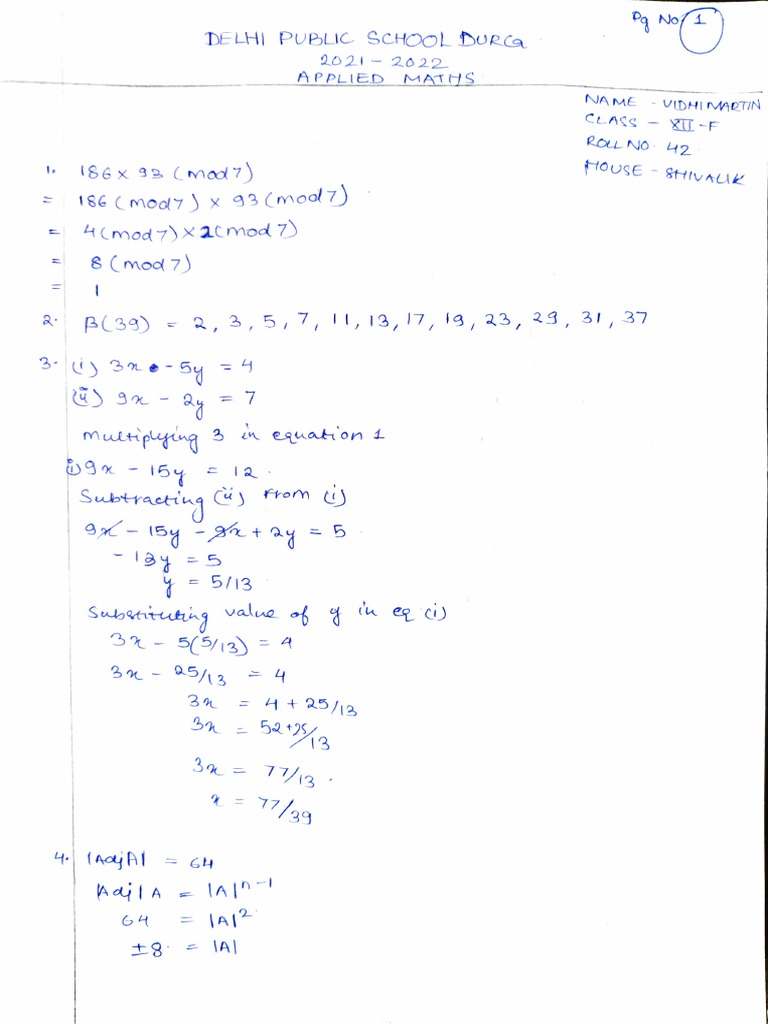 Pg No 1
DELHI PUBLIC SCHOOL DURG
2021 - 2022
APPLIED MATHS
NAME - VIDHI MARTIN
CLASS - XII - F
ROLL NO. 42
HOUSE - SHIVALIK
1. 186 x 93 (mod 7)
= 186 (mod 7) x 93 (mod 7)
= 4 (mod 7) x 2 (mod 7)
= 8 (mod 7)
= 1
2. β(39) = 2, 3, 5, 7, 11, 13, 17, 19, 23, 29, 31, 37
3. (i) 3x - 5y = 4
(ii) 9x - 2y = 7
Multiplying 3 in equation 1
(i) 9x - 15y = 12.
Subtracting (ii) from (i)
9x - 15y - 9x + 2y = 5
- 13y = 5
y = 5/13
Substituting value of y in eq (i)
3x - 5(5/13) = 4
3x - 25/13 = 4
3x = 4 + 25/13
3x = 52+25/13
3x = 77/13.
x = 77/39
4. |AdjA| = 64
|Adj|A = |A|ⁿ⁻¹
64 = |A|²
±8 = |A|